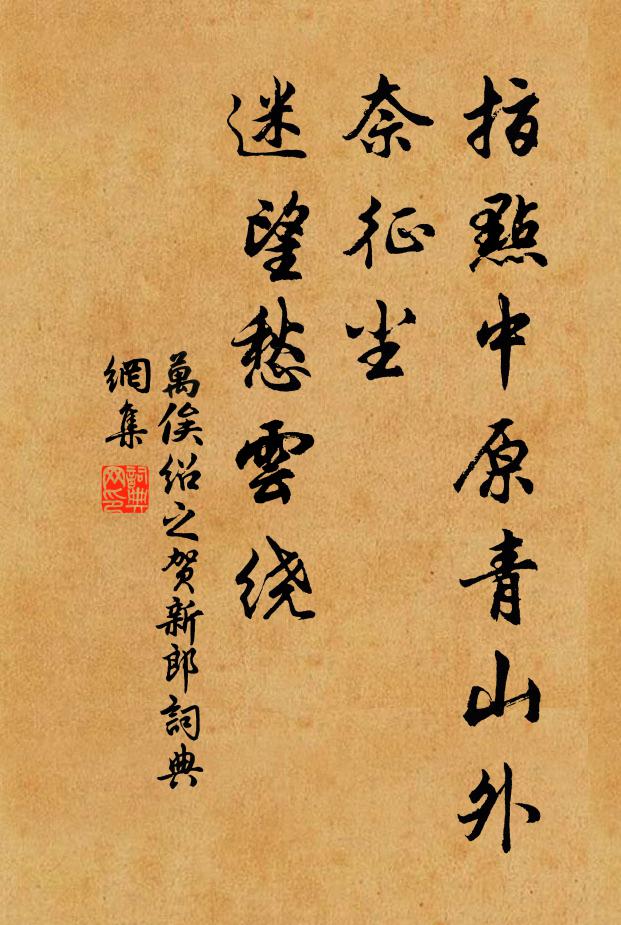 指點中原青山外
奈征尘
迷望愁雲绕
萬俟绍之贺新郎詞典
網集
詞典网印